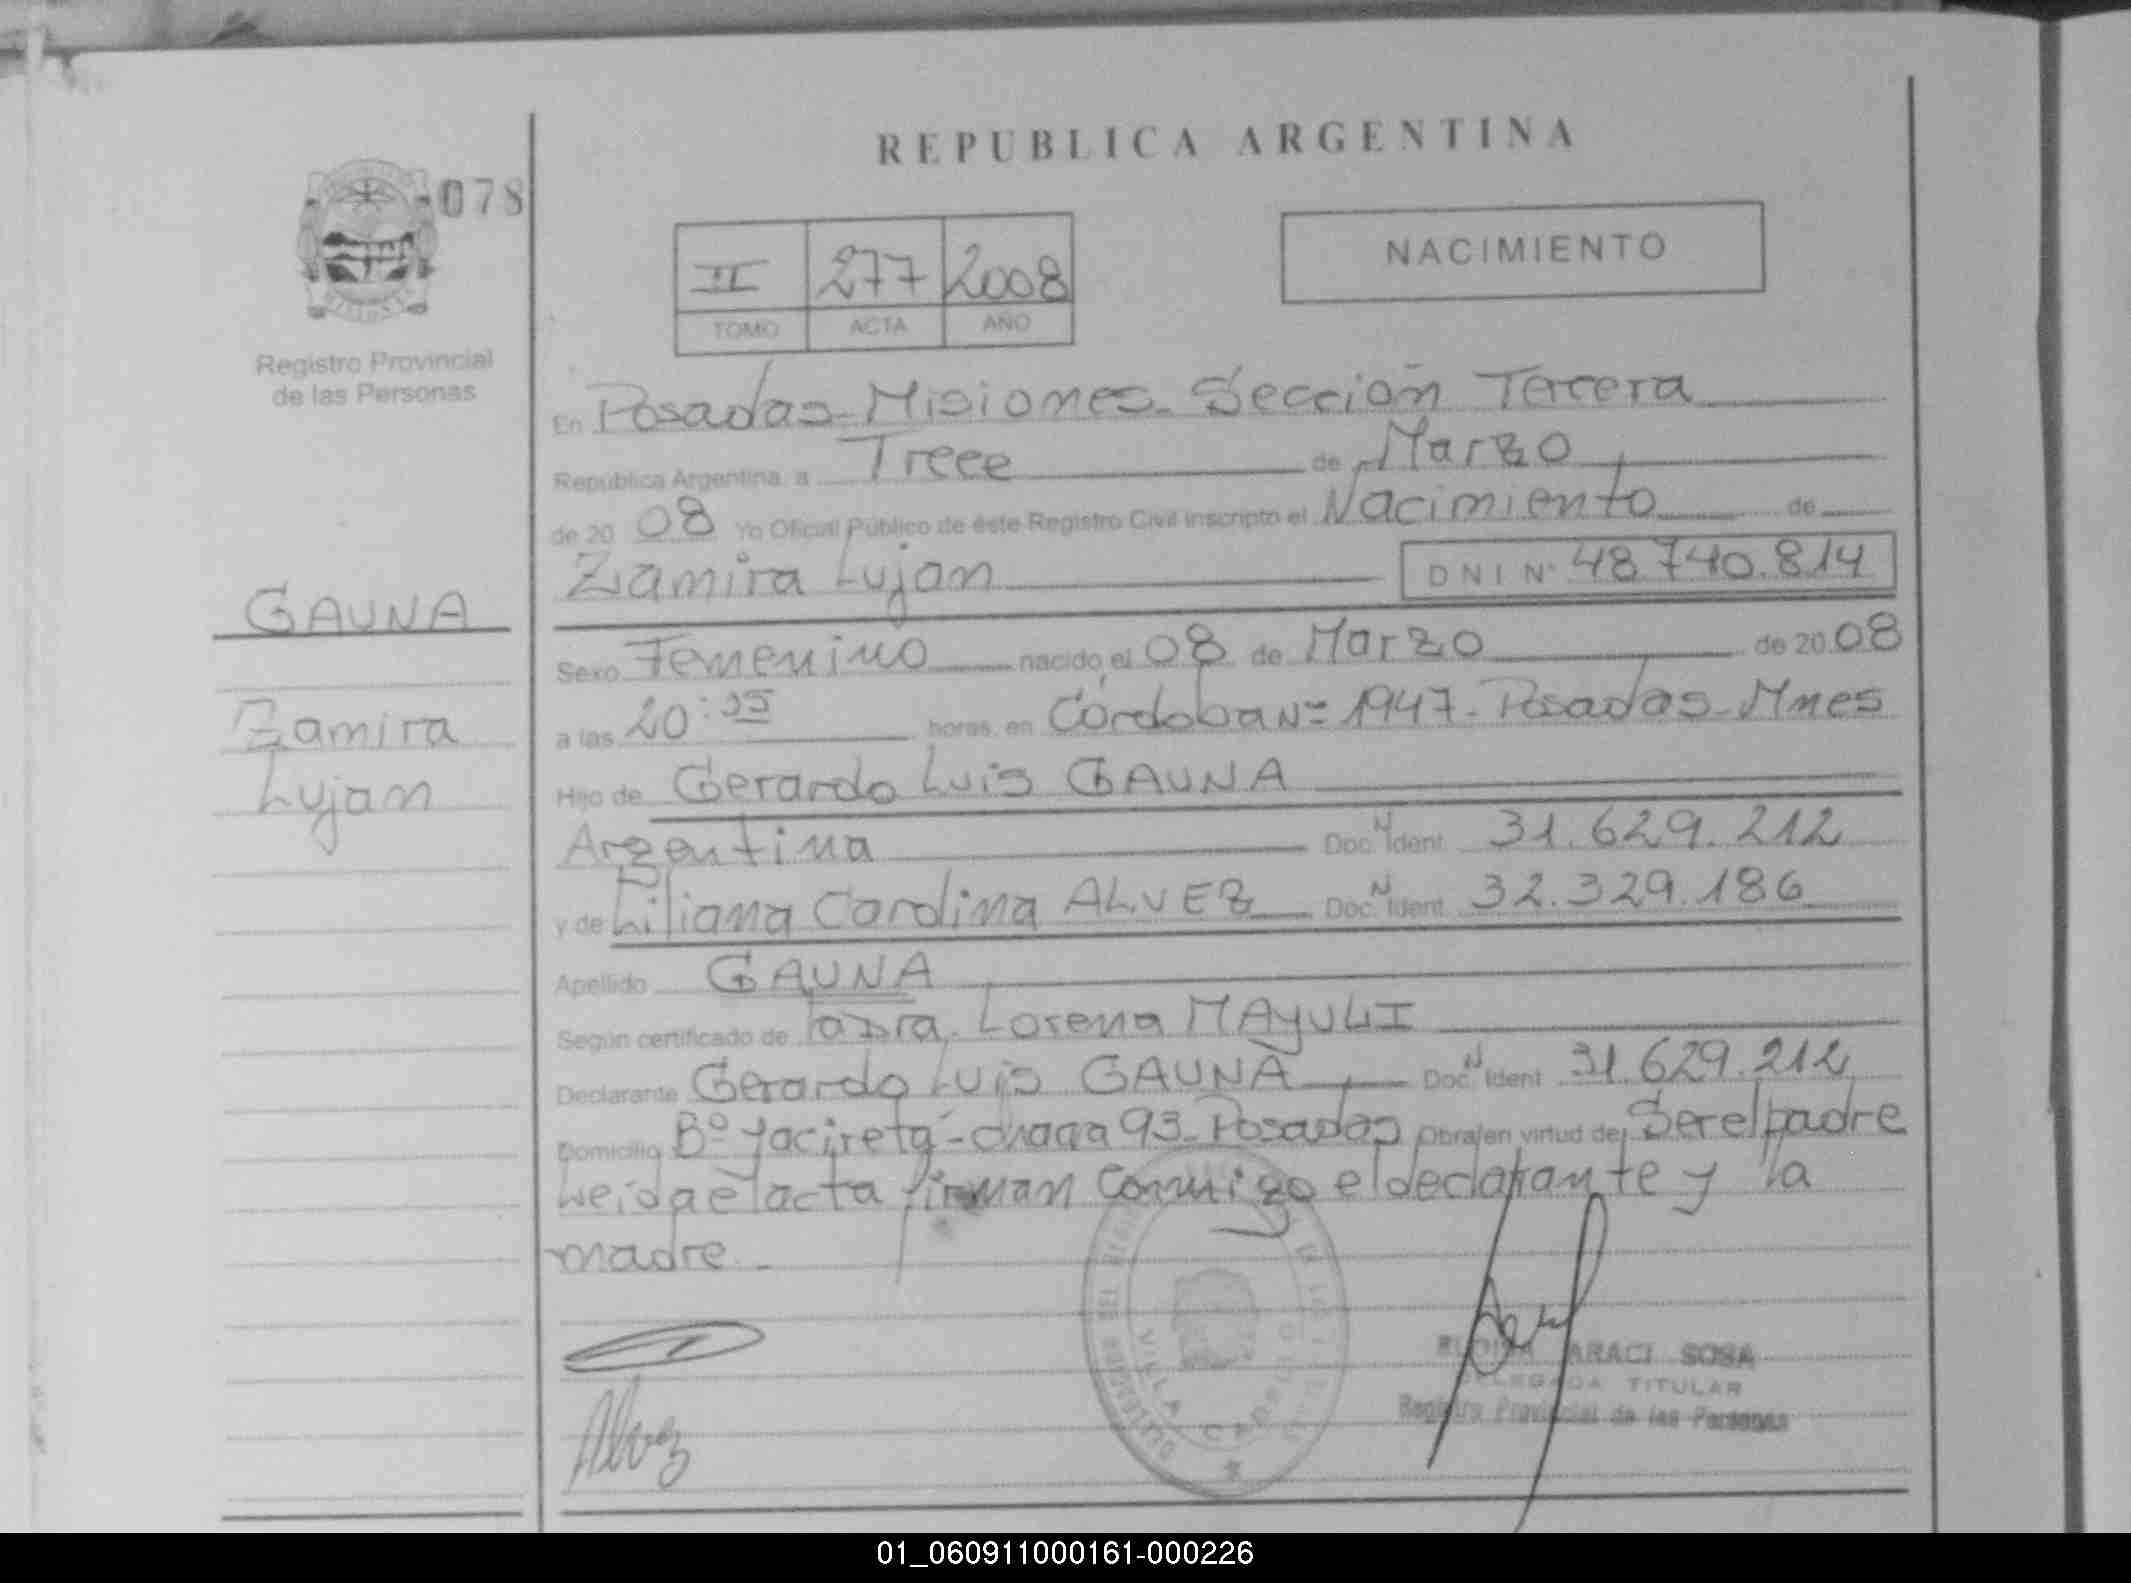 REPUBLICA ARGENTINA
078
NACIMIENTO
II 277 2008
TOMO ACTA AÑO
Registro Provincial
de las Personas
En Posadas - Misiones - Sección Tercera
República Argentina, a Trece de Marzo
de 20 08 Yo Oficial Público de éste Registro Civil inscripto el Nacimiento de
Zamira Lujan DNI Nº 48.740.814
GAUNA
Zamira
Lujan
Sexo Femenino nacido el 08 de Marzo de 20 08
a las 20: horas, en Córdoba Nº 1947 - Posadas - Mnes
Hijo de Gerardo Luis GAUNA
Argentina Doc. N Ident. 31.629.212
y de Liliana Carolina ALVEZ Doc. N Ident. 32.329.186
Apellido GAUNA
Según certificado de Lorena MAYULI
Declarante Gerardo Luis GAUNA Doc. N Ident. 31.629.212
Domicilio Bº Yacireta - 93 - Posadas Obra en virtud de Ser el padre
Leida el acta firman Conmigo el declarante y la
madre. -
Alvez
ARACI SOSA
DELEGADA TITULAR
Registro Provincial de las Personas
01_060911000161-000226